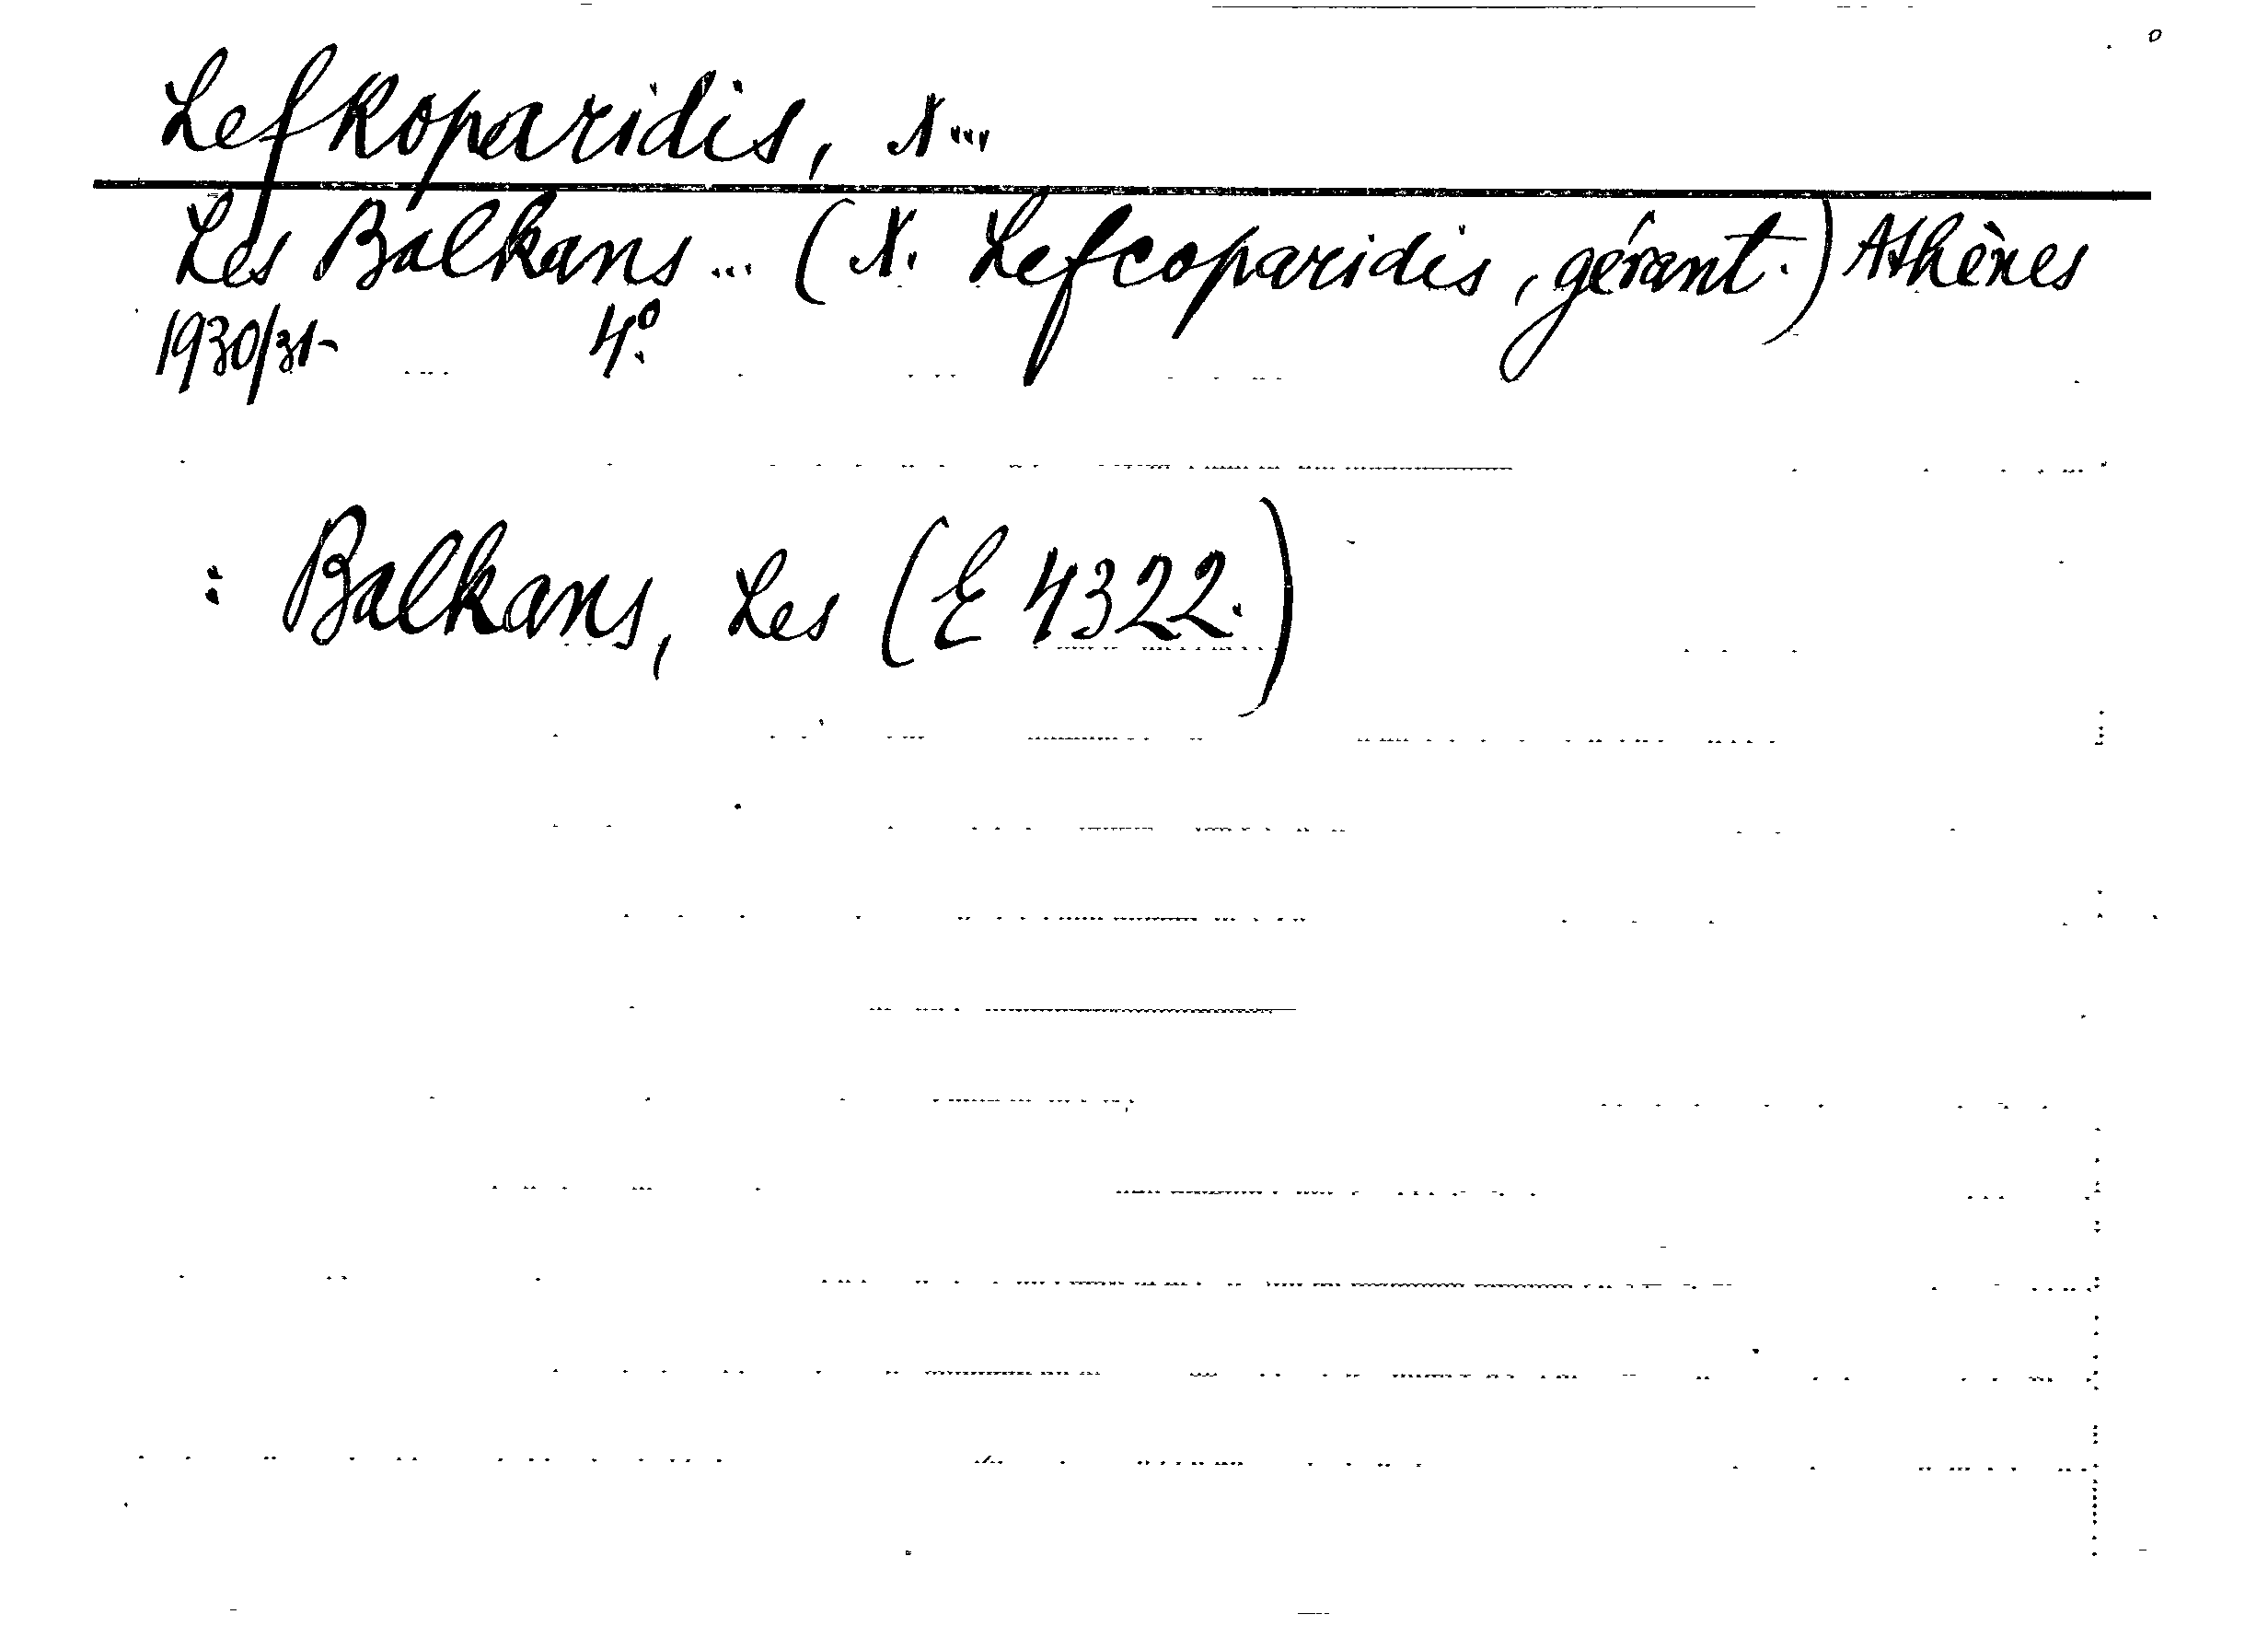 Lefkoparidis, X...
Les Balkans... (X. Lefcoparidis, gérant.) Athènes
1930/31- 4º.
: Balkans, Les (E 4322.)